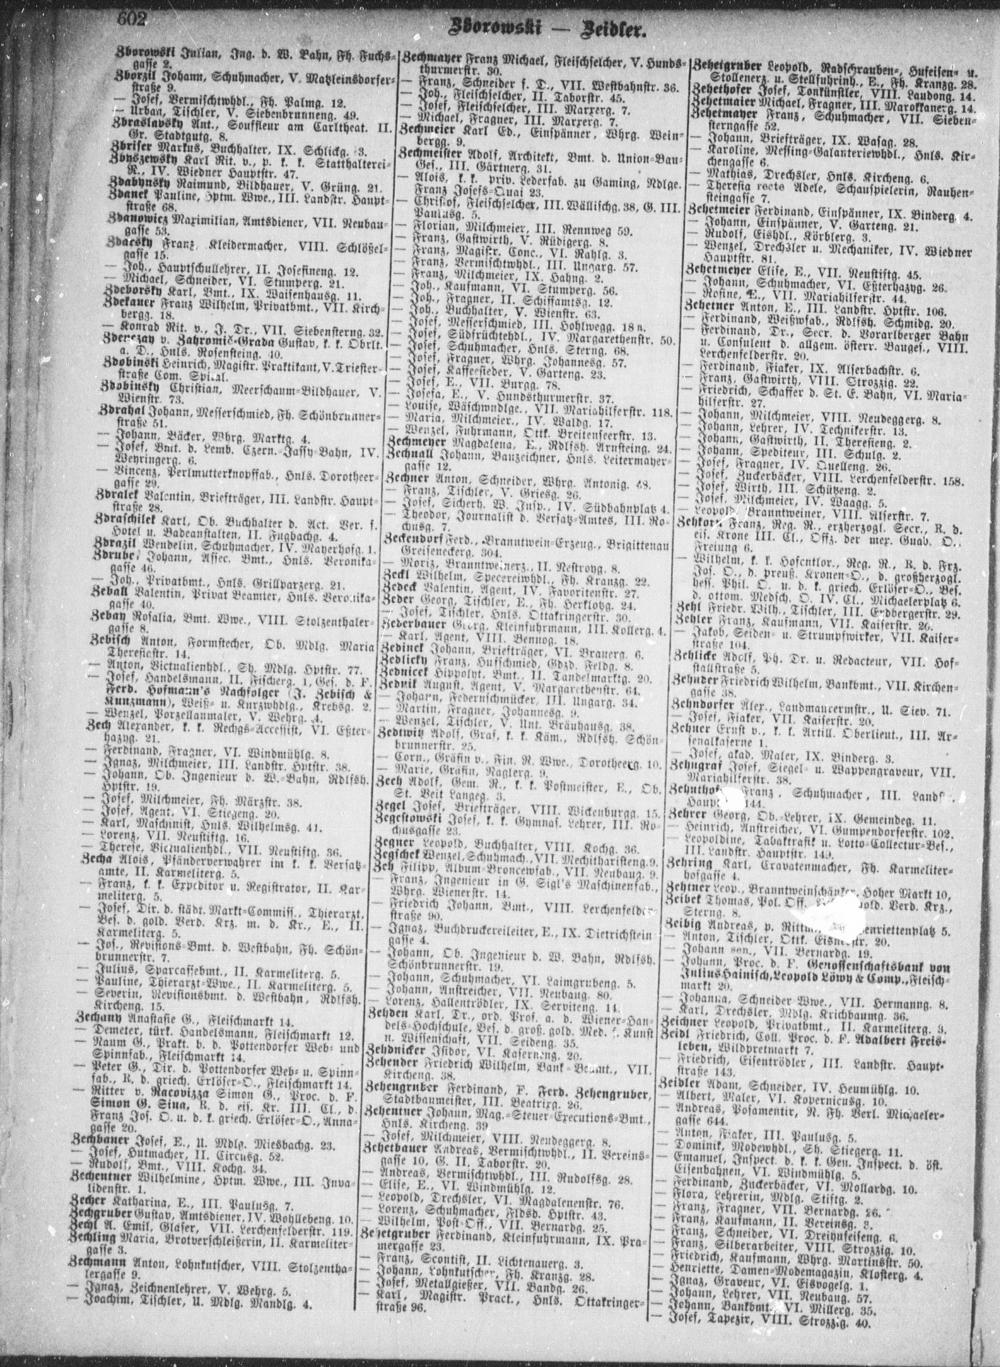 602
Zborowski — Zeidler.
Zborowski Julian, Ing. d. W. Bahn, Fh. Fuchs-
gasse 2.
Zborzil Johann, Schuhmacher, V. Matzleinsdorfer-
straße 9.
— Josef, Vermischtwhdl., Fh. Palmg. 12.
— Urban, Tischler, V. Siebenbrunneng. 49.
Zbraslavsky Ant., Souffleur am Carltheat. II.
Gr. Stadtgutg. 8.
Zbriser Markus, Buchhalter, IX. Schlickg. 3.
Zbyszewsky Karl Rit. v., p. k. k. Statthalterei-
R., IV. Wiedner Hauptstr. 47.
Zdabynsky Raimund, Bildhauer, V. Grüng. 21.
Zdanek Pauline, Hptm. Wwe., III. Landstr. Haupt-
straße 68.
Zdanowicz Maximilian, Amtsdiener, VII. Neubau-
gasse 53.
Zdarsky Franz, Kleidermacher, VIII. Schlössel-
gasse 15.
— Joh., Hauptschullehrer, II. Josefineng. 12.
— Michael, Schneider, VI. Stumperg. 21.
Zdeborsky Karl, Bmt., IX. Waisenhausg. 11.
Zdekauer Franz Wilhelm, Privatbmt., VII. Kirch-
bergg. 18.
— Konrad Rit. v., J. Dr., VII. Siebensterng. 32.
v. Zahromic-Grada Gustav, k. k. Obrlt.
a. D., Hnls. Rosensteing. 40.
Zdobinski Heinrich, Magistr. Praktikant, V. Triester-
straße Com. Spital.
Zdobinsky Christian, Meerschaum-Bildhauer, V.
Wienstr. 73.
Zdrahal Johann, Messerschmied, Fh. Schönbrunner-
straße 51.
— Johann, Bäcker, Whrg. Marktg. 4.
— Josef, Bmt. d. Lemb. Czern. Jassy-Bahn, IV.
Weyringerg. 6.
— Vincenz, Perlmutterknopffab., Hnls. Dorotheer-
gasse 29.
Zdralek Valentin, Briefträger, III. Landstr. Haupt-
straße 28.
Zdraschilek Karl, Ob. Buchhalter d. Act. Ver. f.
Hotel u. Badeanstalten, II. Fugbachg. 4.
Zdrazil Wendelin, Schuhmacher, IV. Mayerhofg. 1.
Zdrube Johann, Assec. Bmt., Hnls. Veronika-
gasse 46.
— Joh., Privatbmt., Hnls. Grillparzerg. 21.
Zeball Valentin, Privat Beamter, Hnls. Veronika-
gasse 40.
Zebay Rosalia, Bmt. Wwe., VIII. Stolzenthaler-
gasse 8.
Zebisch Anton, Formstecher, Ob. Mdlg. Maria
Theresiestr. 14.
— Anton, Victualienhdl., Sh. Mdlg. Hptstr. 77.
— Josef, Handelsmann, II. Fischerg. 1, Ges. d. F.
Ferd. Hofmann's Nachfolger (J. Zebisch &
Kunzmann), Weiß- u. Kurzwhdlg., Krebsg. 2.
— Wenzel, Porzellanmaler, V. Wehrg. 4.
Zech Alexander, k. k. Rechgs-Accessist, VI. Eßter-
hazyg. 21.
— Ferdinand, Fragner, VI. Windmühlg. 8.
— Ignaz, Milchmeier, III. Landstr. Hptstr. 38.
— Johann, Ob. Ingenieur d. W.-Bahn, Rdlfsh.
Hptstr. 19.
— Josef, Milchmeier, Fh. Märzstr. 38.
— Josef, Agent, VI. Stiegeng. 20.
— Karl, Maschinist, Hnls. Wilhelmsg. 41.
— Lorenz, VII. Neustiftg. 16.
— Therese, Victualienhdl., VII. Neustiftg. 36.
Zecha Alois, Pfänderverwahrer im k. k. Versatz-
amte, II. Karmeliterg. 5.
— Franz, k. k. Expeditor u. Registrator, II. Kar-
meliterg. 5.
— Josef, Dir. d. städt. Markt-Commiss., Thierarzt,
Bes. d. gold. Verd. Krz. m. d. Kr., E., II.
Karmeliterg. 5.
— Jos., Revisions-Bmt. d. Westbahn, Fh. Schön-
brunnerstr. 7.
— Julius, Sparcassebmt., II. Karmeliterg. 5.
— Pauline, Thierarzt-Wwe., II. Karmeliterg. 5.
— Severin, Revisionsbmt. d. Westbahn, Rdlfsh.
Kircheng. 15.
Zechany Anastasie G., Fleischmarkt 14.
— Demeter, türk. Handelsmann, Fleischmarkt 12.
— Naum G., Prakt. b. d. Pottendorfer Web- und
Spinnfab., Fleischmarkt 14.
— Peter G., Dir. d. Pottendorfer Web- u. Spinn-
fab., R. d. griech. Erlöser-O., Fleischmarkt 14.
— Ritter v. Racovizza Simon G., Proc. d. F.
Simon G. Sina, R. d. eis. Kr. III. Cl., d.
Franz Jos. O. u. d. k. griech. Erlöser-O., Anna-
gasse 20.
Zechbauer Josef, E., U. Mdlg. Miesbachg. 23.
— Josef, Hutmacher, II. Circusg. 52.
— Rudolf, Bmt., VIII. Kochg. 34.
Zechentner Wilhelmine, Hptm. Wwe., III. Inva-
lidenstr. 1.
Zecher Katharina, E., III. Paulusg. 7.
Zechgruber Gustav, Amtsdiener, IV. Wohllebeng. 10.
Zechl A. Emil, Glaser, VII. Lerchenfelderstr. 119.
Zechling Maria, Brotverschleißerin, II. Karmeliter-
gasse 3.
Zechmann Anton, Lohnkutscher, VIII. Stolzentha-
lergasse 9.
— Ignaz, Zeichnenlehrer, V. Wehrg. 5.
— Joachim, Tischler, U. Mdlg. Mandlg. 4.
Zechmayer Franz Michael, Fleischselcher, V. Hunds-
thurmerstr. 30.
— Franz, Schneider f. D., VII. Westbahnstr. 36.
— Joh., Fleischselcher, II. Taborstr. 45.
— Josef, Fleischselcher, III. Marxerg. 7.
— Michael, Fragner, III. Marxerg. 7.
Zechmeier Karl Ed., Einspänner, Whrg. Wein-
bergg. 9.
Zechmeister Adolf, Architekt, Bmt. d. Union-Bau-
Ges., III. Gärtnerg. 31.
— Alois, k. k. priv. Lederfab. zu Gaming, Ndlge.
Franz Josefs-Quai 23.
— Christof, Fleischselcher, III. Wällischg. 38, G. III.
Paulusg. 5.
— Florian, Milchmeier, III. Rennweg 59.
— Franz, Gastwirth, V. Rüdigerg. 8.
— Franz, Magistr. Conc., VI. Rahlg. 3.
— Franz, Vermischtwhdl., III. Ungarg. 57.
— Franz, Milchmeier, IX. Hahng. 2.
— Joh., Kaufmann, VI. Stumperg. 56.
— Joh., Fragner, II. Schiffamtsg. 12.
— Joh., Buchhalter, V. Wienstr. 63.
— Josef, Messerschmied, III. Hohlwegg. 18 a.
— Josef, Südfrüchtehdl., IV. Margarethenstr. 50.
— Josef, Schuhmacher, Hnls. Sterng. 68.
— Josef, Fragner, Whrg. Johannesg. 57.
— Josef, Kaffeesieder, V. Garteng. 23.
— Josef, E., VII. Burgg. 78.
— Josefa, E., V. Hundsthurmerstr. 37.
— Louise, Wäschwndlge., VII. Mariahilferstr. 118.
— Maria, Milchmeier., IV. Waldg. 17.
— Wenzel, Fuhrmann, Ottk. Breitenseerstr. 13.
Zechmeyer Magdalena, E., Rdlfsh. Arnsteing. 24.
Zechnall Johann, Bauzeichner, Hnls. Leitermayer-
gasse 12.
Zechner Anton, Schneider, Whrg. Antonig. 48.
— Franz, Tischler, V. Griesg. 26.
— Josef, Sicherh. W. Insp., IV. Südbahnplatz 4.
— Theodor, Journalist d. Versatz-Amtes, III. Ro-
chusg. 7.
Zeckendorf Ferd., Branntwein-Erzeug., Brigittenau
Greiseneckerg. 304.
— Moriz, Branntweinerz., II. Nestroyg. 8.
Zeckl Wilhelm, Specereiwhdl., Fh. Kranzg. 22.
Zedeck Valentin, Agent, IV. Favoritenstr. 27.
Zeder Georg, Tischler, E., Fh. Herklotzg. 24.
— Josef, Tischler, Hnls. Ottakringerstr. 30.
Zederbauer Georg, Kleinfuhrmann, III. Kollerg. 4.
— Karl, Agent, VIII. Bennog. 18.
Zedinek Johann, Briefträger, VI. Brauerg. 6.
Zedlicky Franz, Hufschmied, Gdzd. Feldg. 8.
Zednicek Hippolyt, Bmt., II. Tandelmarktg. 20.
Zednik August, Agent, V. Margarethenstr. 64.
— Johann, Federnschmücker, III. Ungarg. 34.
— Martin, Fragner, Johannesg. 9.
— Wenzel, Tischler, V. Unt. Bräuhausg. 38.
Zedtwitz Adolf, Graf, k. k. Käm., Rdlfsh. Schön-
brunnerstr. 25.
— Corn., Gräfin v., Fin. R. Wwe., Dorotheerg. 10.
— Marie, Gräfin, Naglerg. 9.
Zeeh Adolf, Gem. R., k. k. Postmeister, E., Ob.
St. Veit Langeg. 3.
Zegel Josef, Briefträger, VIII. Wickenburgg. 15.
Zegestowski Josef, k. k. Gymnas. Lehrer, III. Ro-
chusgasse 23.
Zegner Leopold, Buchhalter, VIII. Kochg. 36.
Zegschek Wenzel, Schuhmach., VII. Mechitharisteng. 9.
Zeh Filipp, Album-Broncewfab., VII. Neubaug. 9.
— Franz, Ingenieur in G. Sigl's Maschinenfab.,
Whrg. Wienerstr. 14.
— Friedrich Johann, Bmt., VIII. Lerchenfelder-
straße 90.
— Ignaz, Buchdruckereileiter, E., IX. Dietrichstein-
gasse 4.
— Johann, Ob. Ingenieur d. W. Bahn, Rdlfsh.
Schönbrunnerstr. 19.
— Johann, Schuhmacher, VI. Laimgrubeng. 5.
— Johann, Anstreicher, VII. Neubaug. 80.
— Lorenz, Hallentrödler, IX. Serviteng. 14.
Zehden Karl, Dr., ord. Prof. a. d. Wiener-Han-
dels-Hochschule, Bes. d. groß. gold. Med. f. Kunst
u. Wissenschaft, VII. Seideng. 35.
Zehdnicker Isidor, VI. Kaserneng. 20.
Zehender Friedrich Wilhelm, Bank-Beamt., VII.
Kircheng. 38.
Zehengruber Ferdinand, F. Ferd. Zehengruber,
Stadtbaumeister, III. Beatrixg. 26.
Zehentner Johann, Mag.-Steuer-Executions-Bmt.,
Hnls. Kircheng. 39
— Josef, Milchmeier, VIII. Neudeggerg. 8.
Zehetbauer Andreas, Vermischtwhdl., II. Vereins-
gasse 10, G. II. Taborstr. 20.
— Andreas, Vermischtwhdl., III. Rudolfsg. 28.
— Elise, E., VI. Windmühlg. 12.
— Leopold, Drechsler, VI. Magdalenenstr. 76.
— Lorenz, Schuhmacher, Fldsd. Hptstr. 43.
— Wilhelm, Post-Off., VII. Bernardg. 25.
Zehetgruber Ferdinand, Kleinfuhrmann, IX. Pra-
mergasse 23.
— Franz, Scontist, II. Lichtenauerg. 3.
— Johann, Lohnkutscher, Fh. Kranzg. 28.
— Josef, Metallgießer, VII. Bandg. 26.
— Karl, Magistr. Pract., Hnls. Ottakringer-
straße 96.
Zehetgruber Leopold, Radschrauben-, Hufeisen- u.
Stollenerz. u. Stellfuhrinh., E., Fh. Kranzg. 28.
Zehethofer Josef, Tonkünstler, VIII. Laudong. 14.
Zehetmaier Michael, Fragner, III. Marokkanerg. 14.
Zehetmayer Franz, Schuhmacher, VII. Sieben-
sterngasse 52.
— Johann, Briefträger, IX. Wasag. 28.
— Karoline, Messing-Galanteriewhdl., Hnls. Kir-
chengasse 6.
— Mathias, Drechsler, Hnls. Kircheng. 6.
— Theresia recte Adele, Schauspielerin, Rauhen-
steingasse 7.
Zehetmeier Ferdinand, Einspänner, IX. Binderg. 4.
— Johann, Einspänner, V. Garteng. 21.
— Rudolf, Eishdl., Körblerg. 3.
— Wenzel, Drechsler u. Mechaniker, IV. Wiedner
Hauptstr. 81.
Zehetmeyer Elise, E., VII. Neustiftg. 45.
— Johann, Schuhmacher, VI. Eßterhazyg. 26.
— Rosine, E., VII. Mariahilferstr. 44.
Zehetner Anton, E., III. Landstr. Hptstr. 106.
— Ferdinand, Weißwfab., Rdlfsh. Schmidg. 20.
— Ferdinand, Dr., Secr. d. Vorarlberger Bahn
u. Consulent d. allgem. österr. Bauges., VIII.
Lerchenfelderstr. 20.
— Ferdinand, Fiaker, IX. Alserbachstr. 6.
— Franz, Gastwirth, VIII. Strozzig. 22.
— Friedrich, Schaffer d. St. E. Bahn, VI. Maria-
hilferstr. 27.
— Johann, Milchmeier, VIII. Neudeggerg. 8.
— Johann, Lehrer, IV. Technikerstr. 13.
— Johann, Gastwirth, II. Theresieng. 2.
— Johann, Spediteur, III. Schulg. 2.
— Josef, Fragner, IV. Quelleng. 26.
— Josef, Zuckerbäcker, VIII. Lerchenfelderstr. 158.
— Josef, Wirth, III. Schützeng. 2.
— Josef, Milchmeier, IV. Waagg. 5.
— Leopold, Branntweiner, VIII. Alserstr. 7.
Franz, Reg. R., erzherzogl. Secr., R. d.
eis. Krone III. Cl., Offz. der mex. Guad. O.,
Freiung 6.
— Wilhelm, k. k. Hofcontlor., Reg. R., R. d. Frz.
Jos. O., d. preuß. Kronen-O., d. großherzogl.
hess. Phil. O., u. d. k. griech. Erlöser-O., Bes.
d. ottom. Medsch. O. IV. Cl., Michaelerplatz 6.
Zehl Friedr. Wilh., Tischler, III. Erdbergerstr. 29.
Zehler Franz, Kaufmann, VII. Kaiserstr. 26.
— Jakob, Seiden- u. Strumpfwirker, VII. Kaiser-
straße 104.
Zehlicke Adolf, Ph. Dr. u. Redacteur, VII. Hof-
stallstraße 5.
Zehnder Friedrich Wilhelm, Bankbmt., VII. Kirchen-
gasse 38.
Zehndorfer Alex., Landmaurermstr., U. Siev. 71.
— Josef, Fiaker, VII. Kaiserstr. 20.
Zehner Ernst v., k. k. Artill. Oberlieut., III. Ar-
senalkaserne 1.
— Josef, akad. Maler, IX. Binderg. 3.
Zehngraf Josef, Siegel- u. Wappengraveur, VII.
Mariahilferstr. 38.
Franz, Schuhmacher, III. Landstr.
144.
Zehrer Georg, Ob.-Lehrer, IX. Gemeindeg. 11.
— Heinrich, Anstreicher, VI. Gumpendorferstr. 102.
— Leopoldine, Tabaktrafik u. Lotto-Collectur-Bes.,
III. Landstr. Hauptstr. 149.
Zehring Karl, Cravatenmacher, Fh. Karmeliter-
hofgasse 4.
Zehtner Leop., Branntweinschänker, Hoher Markt 10,
Zeibek Thomas, Pol. Off., Verd. Krz.,
Sterng. 8.
Zeibig Andreas, p. Rittm. enriettenplatz 5.
— Anton, Tischler, Ottk. Eisnerstr. 20.
— Johann sen., VII. Bernardg. 19.
— Johann, Proc. d. F. Genossenschaftsbank von
Julius Hainisch, Leopold Löwy & Comp., Fleisch-
markt 20.
— Johanna, Schneider Wwe., VII. Hermanng. 8.
— Karl, Drechsler, Mdlg. Krichbaumg. 36.
Zeichner Leopold, Privatbmt., II. Karmeliterg. 3.
Zeidl Friedrich, Coll. Proc. d. F. Adalbert Freis-
leben, Wildpretmarkt 7.
— Friedrich, Eisentrödler, III. Landstr. Haupt-
straße 143.
Zeidler Adam, Schneider, IV. Heumühlg. 10.
— Albert, Maler, VI. Kopernicusg. 10.
— Andreas, Posamentir, N. Fh. Verl. Michaeler-
gasse 644.
— Anton, Fiaker, III. Paulusg. 5.
— Dominik, Modewhdl., Sh. Stiegerg. 11.
— Emanuel, Inspect. d. k. k. Gen. Inspect. d. öst.
Eisenbahnen, VI. Windmühlg. 5.
— Ferdinand, Zuckerbäcker, VI. Mollardg. 10.
— Flora, Lehrerin, Mdlg. Stiftg. 2.
— Franz, Fragner, VII. Bernardg. 26.
— Franz, Kaufmann, II. Vereinsg. 3.
— Franz, Schneider, VI. Dreihufeiseng. 6.
— Franz, Silberarbeiter, VIII. Strozzig. 10.
— Friedrich, Kaufmann, Whrg. Martinsstr. 50.
— Henriette, Damen-Modemagazin, Klosterg. 4.
— Ignaz, Graveur, VI. Eisvogelg. 1.
— Johann, Lehrer, VII. Neubaug. 57.
— Johann, Bankbmt., VI. Millerg. 35.
— Josef, Tapezir, VIII. Strozzig. 40.